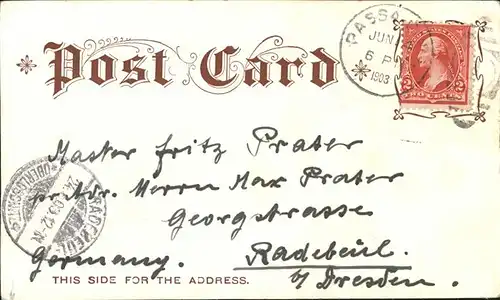 Post Card
PASSA
JUN
6 P
1903
TWO CENTS
2 2
Master Fritz Prater
pr. Adr. Herrn Max Prater
Georgstrasse
Germany. Radebeul.
b/Dresden.
THIS SIDE FOR THE ADDRESS.